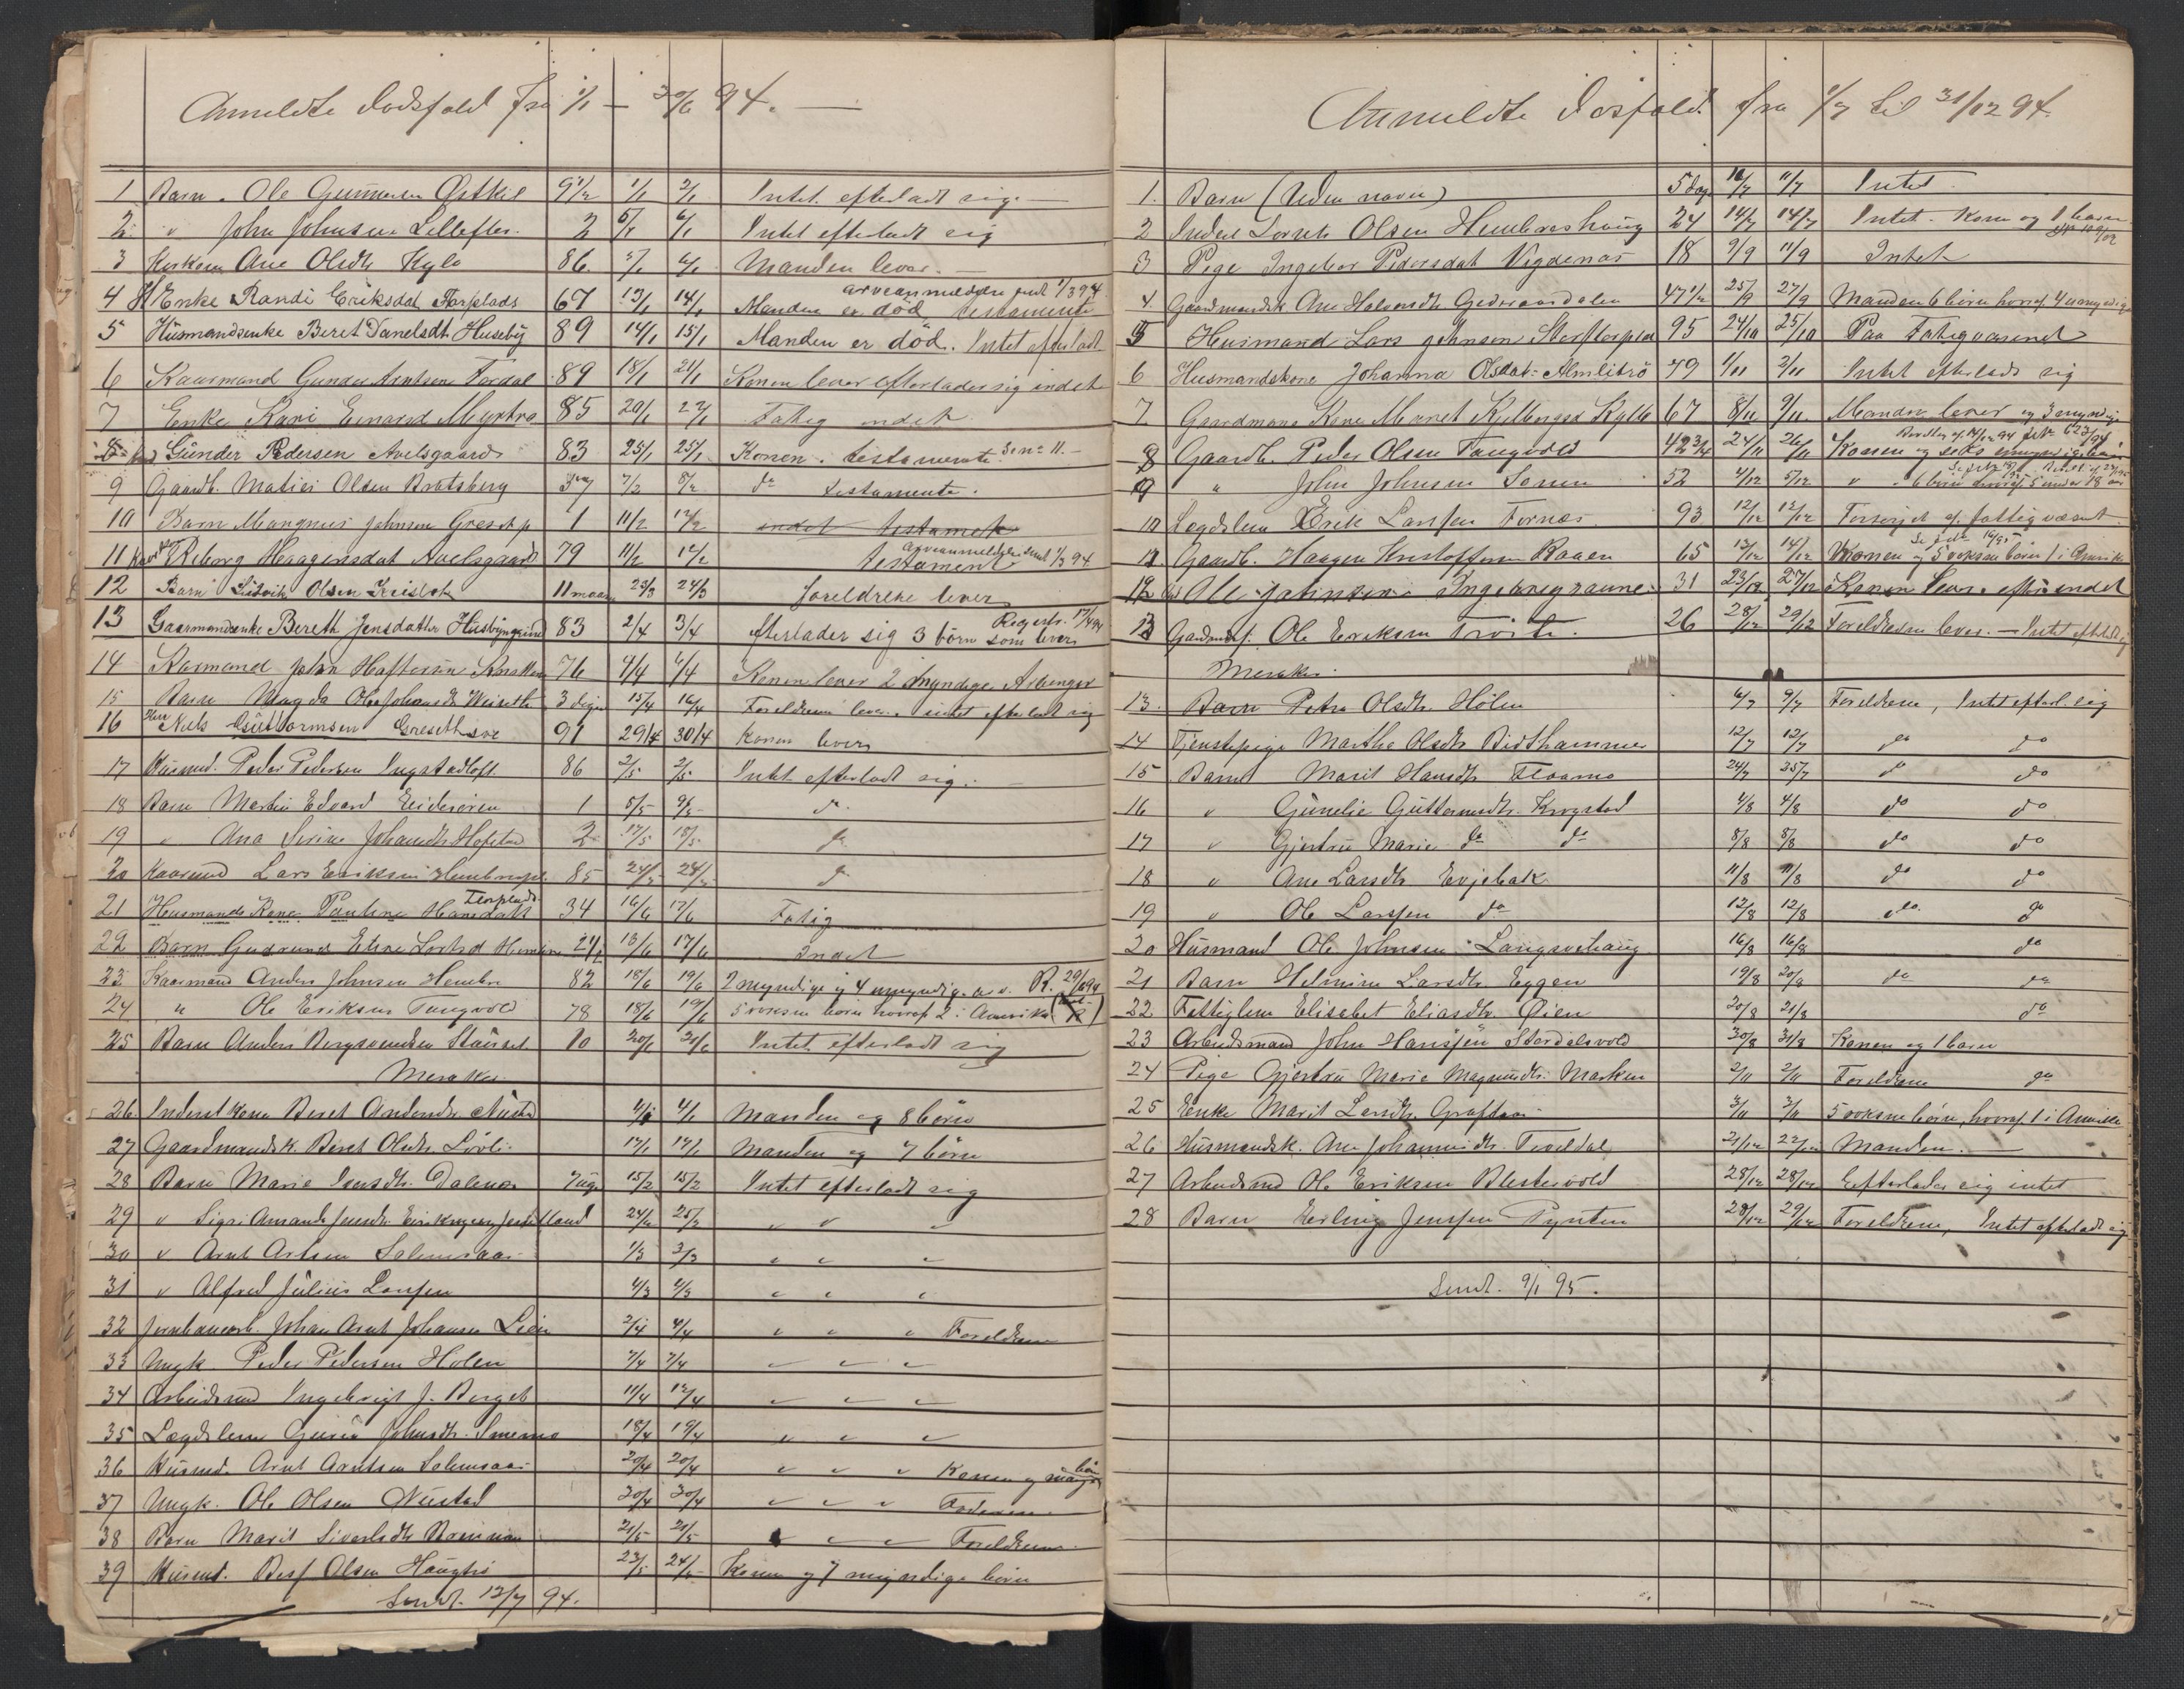 Anmeldte Dødsfald fra 1/1 — 30/6 94. —
1 Barn. Ole Gunnersen Østkil 9 1/2 1/1 2/1 Intet efterladt sig. —
2 " John Johnsen Lillefler. 2 5/1 6/1 Intet efterladt sig
3 Ane Olsdtr Kylo 86 5/1 6/1 Manden lever. —
4 Enke Randi Eriksdat Forplads 67 13/1 14/1 Manden er død, testamente arveanmeldelse sendt 1/3 94
5 Husmandsenke Beret Danelsdt Huseby 89 14/1 15/1 Manden er død. Intet efterladt
6 Kaarmand Gunder Arntsen Fordal 89 18/1 21/1 Konen lever efterlader sig indet
7 Enke Kari Einarsd Myrtro 85 20/1 22/1 Fattig indet
8 Gunder Pedersen Avelsgaard 83 25/1 25/1 Konen. testamente. Se no 11. —
9 Gaardb. Matias Olsen Bratsberg 37 7/2 8/2 do testamente.
10 Barn Mangnus Johnsen Gresetp 1 11/2 12/2 indet testamete
11 Reborg Haagensdat Avelsgaard 79 11/2 12/2 testament arveanmeldelse sendt 1/3 94
12 Barn Ludvik Olsen 11 maan 23/3 24/3 foreldrene lever
13 Gaarmandsenke Bereth Jensdatter Husbyngrind 83 2/4 3/4 efterlader sig 3 börn som lever Registr. 17/4 94
14 Kaarmand John Hafterson 76 4/4 6/4 Konen lever 2 Myndige Arvinger
15 Barn Magda Johansdt Weiseth 3 dage 15/4 16/4 Foreldrene lever. intet efterladt sig
16 Niels Guttormsen Gresethsve 91 29/4 30/4 Konen lever
17 Husmd. Peder Pedersen Ingstadloft 86 2/5 2/5 Intet efterladt sig. —
18 Barn Martin Edvard Eidesören 1 5/5 9/5 do
19 " Ana Serine Johansdtr Hofstad 2 17/5 18/5 do
20 Kaarmd Lars Eriksen 85 24/5 24/5 do
21 Husmands Kone Pauline Hansdatt Fersplads 34 16/6 17/6 Fatig
22 Barn Gudrund Eline Lorhsd Hembre 2 1/2 13/6 17/6 Indet
23 Kaarmand Anders Johnsen Hembre 82 18/6 19/6 2 myndige og 4 umyndige a v. R. 29/6 94
24 " Ole Eriksen Tangvold 78 18/6 19/6 5 voksne börn hvoraf 2 i Amerika
25 Barn Anders Bergsvendsen Stauset 10 20/6 21/6 Intet efterladt sig
Meraker
26 Inderst kone Beret Andersdtr Nustad 4/1 4/1 Manden og 8 börn
27 Gaardmandsk. Beret Olsdtr. Lövli 17/1 17/1 Manden og 7 börn
28 Barn Marie Iversdtr. Dalenes 7 uge 15/2 15/2 Intet efterladt sig
29 " Sigri Amanda Jensdtr. 24/2 25/2 " " "
30 " Arnt Artsen Salemsaas 1/3 3/3 " " "
31 " Alfred Julius Larsen 4/3 4/3 " " "
32 Jernbanearb. Johan Arnt Johansen Lien 2/4 4/4 " " " Foreldrene
33 Ungk. Peder Pedersen Holen 7/4 7/4 " " "
34 Arbeidsmd Ingebrigt J. Berget 11/4 12/4 " " "
35 Lægdslem Guru Johnsdtr. Smemo 18/4 19/4 " " "
36 Husmd. Arnt Arntsen Salemsaas 20/4 20/4 " " " Konen og mange börn
37 Ungk. Ole Olsen Nustad 30/4 30/4 " " " Foderen
38 Barn Marit Sivertsdtr 21/5 21/5 " " " Foreldrene
39 Husmd. Olsen Haugtrö 23/5 24/5 Konen og 7 myndige börn
Sendt. 12/7 94.
Anmeldte Dösfald. fra 1/7 til 31/12 94.
1. Barn (Uden navn) 5 dag 10/7 11/7 Intet
2 Inderst Lorents Olsen Hembreshaug 24 14/7 14/7 Intet. Kone og 1 barn
3 Pige Ingebor Pedersdat Vigdenes 18 9/9 11/9 Intet
4. Gaardmandsk Ane Halvorsdtr. Gederaasdalen 47 1/2 25/9 27/9 Manden 6 börn hvoraf 4 umyndige
5 Husmand Lars Johnsen Storflorplas 95 24/10 25/10 Paa Fatigvæsenet
6 Husmandskone Johanna Olsdat. Almlitrö 49 1/11 2/11 Intet efterlads sig
7 Gaardmans Kone Meret Kylle 67 8/11 9/11. Manden lever og 3 myndige
8 Gaardb. Peder Olsen Tangvold 42 3/4 24/11 26/11 Konen og seks umyndige börn
9 " John Johnsen Sonen 52 4/12 5/12 " 6 börn hvoraf 5 under 18 aar
10 Legdslem Erik Larsfen Fornes 93 12/12 12/12 Forsörjet af fattigvæsnt
11 Gaardb. Haagen Kristoffersen Raaen 65 13/12 14/12 Konen og 5 voksne börn 1 i Amerika
12 Ole Johnsen Ingebregraune 31 23/12 27/12 Konen lever efter indet
13 Gaardmsf. Ole Eriksen Troite. 26 28/12 29/12 Foreldrene lever. — Intet efterladt sig
Meraker.
13. Barn Petra Olsdtr. Hölen 6/7 9/7 Foreldrene, Intet efterl. sig
14 Tjenstepige Marthe Olsdtr Bidthammer 12/7 12/7 do do
15 Barn Marit Hansdtr Floamo 24/7 25/7 do do
16 " Gunelie Guttormsdtr. Krogstad 4/8 4/8 do do
17 " Gjertru Marie do do 8/8 8/8 do do
18 " Ane Larsdtr Evjebak 11/8 11/8 do do
19 " Ole Larssen do 12/8 12/8 do do
20 Husmand Ole Johnsen Langsvehaug 16/8 16/8 do
21 Barn Helmine Larsdtr. Eggen 19/8 20/8 do do
22 Fattiglem Elisabet Eliasdtr. Öien 20/8 21/8 do
23 Arbeidsmand John Hansjen Stordalsvold 30/8 31/8 Konen og 1 barn
24 Pige Gjertru Marie Magnusdtr. Marken 2/11 2/11 Foreldrene do
25 Enke Marit Larsdtr. Graftaas 3/11 3/11 5 voksne börn, hvoraf 1 i Amerika
26 Husmandsk. Ane Johannesdtr. Teveldal 21/12 22/12 Manden. —
27 Arbeidsmd Ole Eriksen Blestervold 28/12 28/12 Efterlader sig intet
28 Barn Erling Jenssen Pynten 28/12 29/12 Foreldrene, Intet efterladt sig
Sendt. 9/1 95.